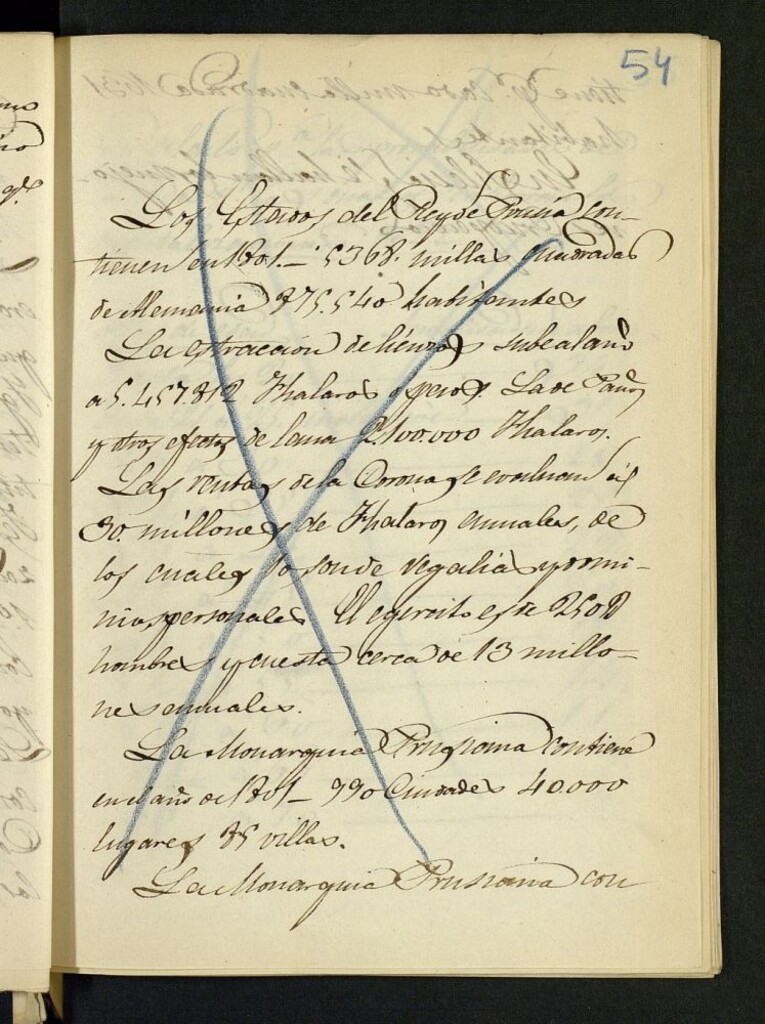 54
Los Estados del Rey de Prusia con-
tienen en 1801 – 5368 millas quadradas
de Alemania 875.540 habitantes
La estraccion de lienzos sube al año
a 5.457.812 Thalaros o pesos. La de Paños
y otros efectos de lana 2.400.000 Thalaros.
Las rentas de la Corona se evaluan en
30. millones de Thalaros annuales, de
los cuales 10 son de regalias y domi-
nios personales El egercito es de 250
hombres y cuesta cerca de 13 millo-
nes annuales.
La Monarquia Prusiana contiene
en el año de 1801 – 990 Ciudades 40.000
lugares 85 villas.
La Monarquia Prusiana con